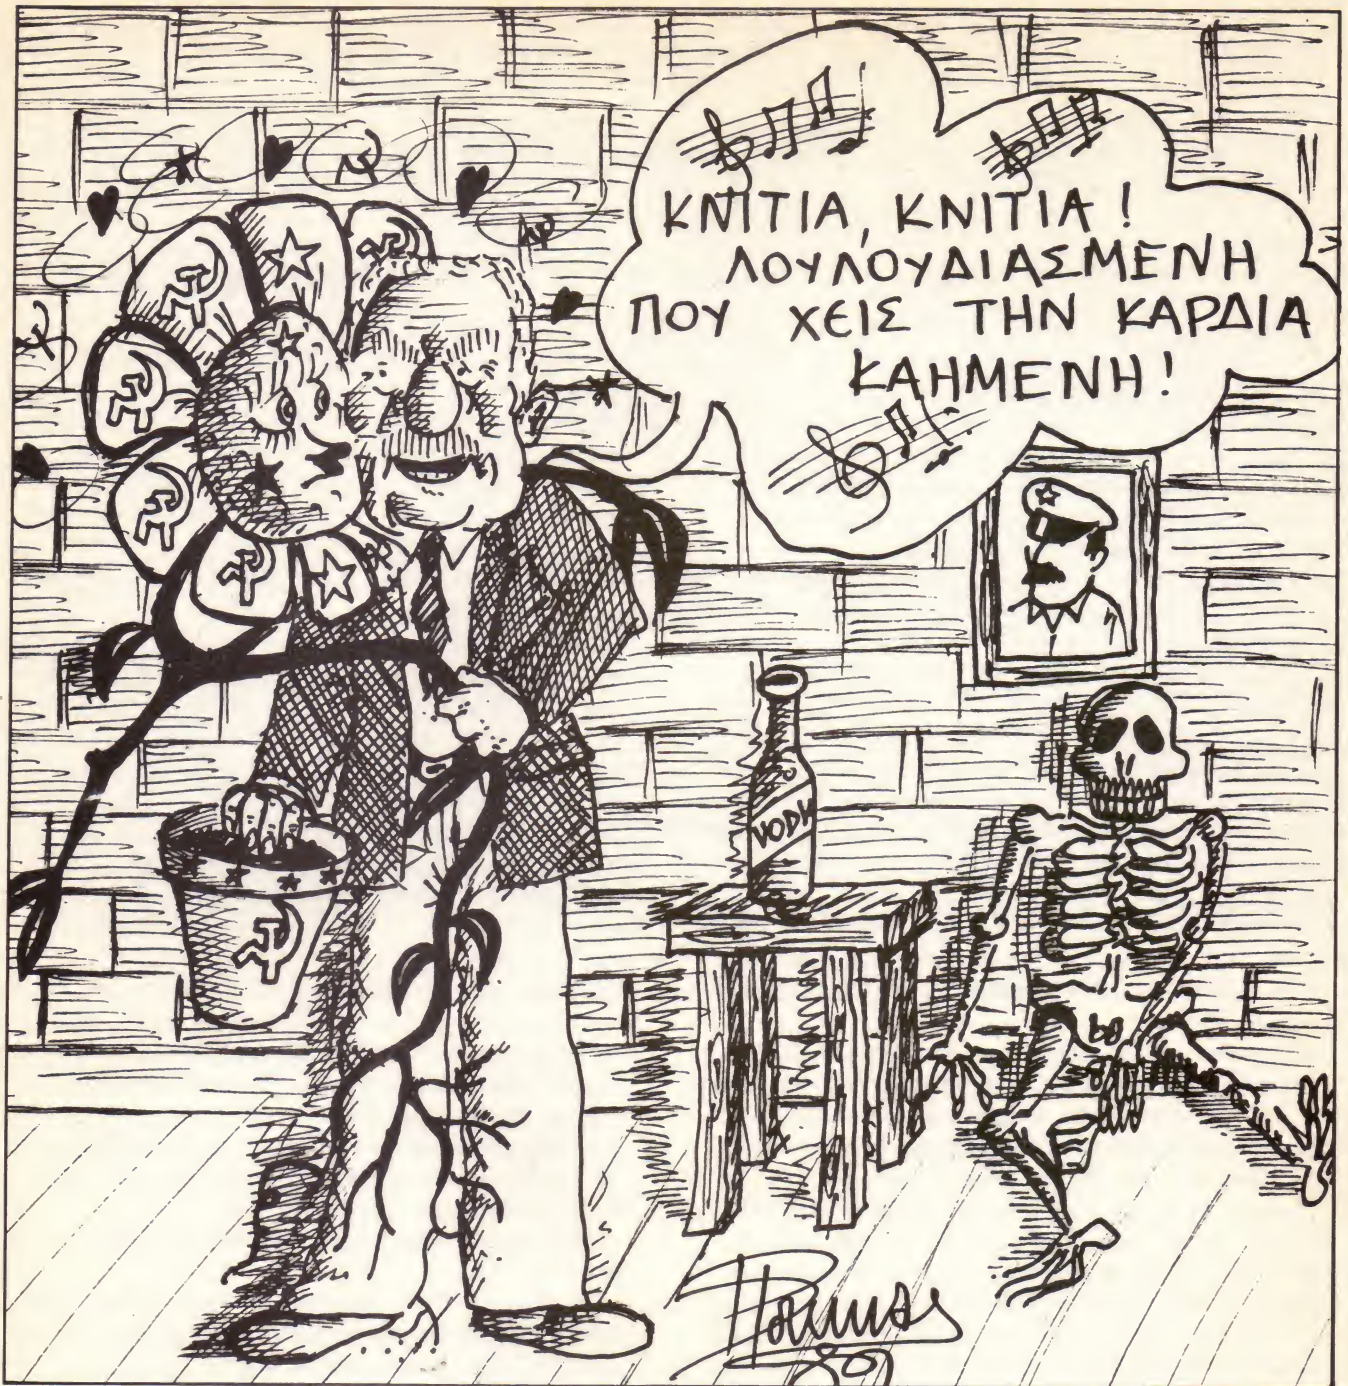 ΚΝΙΤΙΑ, ΚΝΙΤΙΑ!
ΛΟΥΛΟΥΔΙΑΣΜΕΝΗ
ΠΟΥ ΧΕΙΣ ΤΗΝ ΚΑΡΔΙΑ
ΚΑΗΜΕΝΗ!
VODK